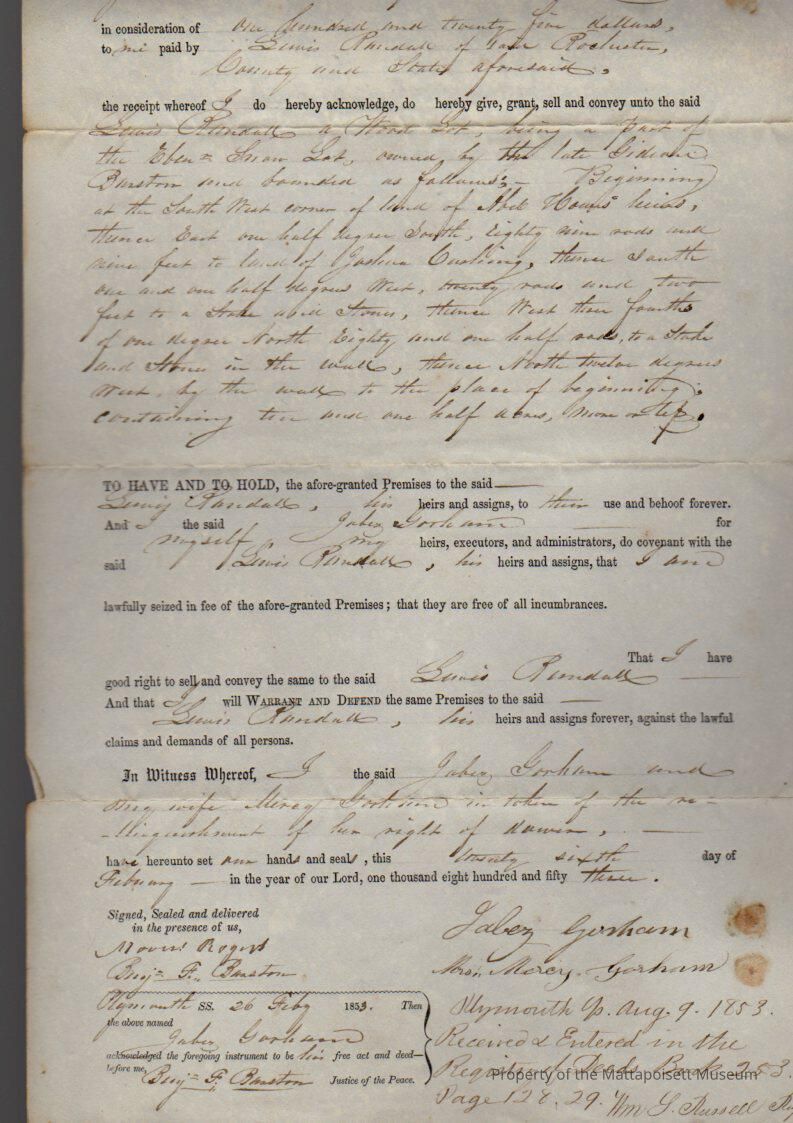 in consideration of one hundred and twenty five dollars,
to me paid by Lewis Randall of said Rochester,
County and State aforesaid,
the receipt whereof I do hereby acknowledge, do hereby give, grant, sell and convey unto the said
Lewis Randall a Wood Lot, being a part of
the Eben= Snow Lot, owned by the late Gideon
Barstow and bounded as follows:- Beginning
at the South West corner of land of Abel Hows' heirs,
thence East one half degree South, Eighty nine rods and
nine feet to land of Joshua Cushing, thence South
one and one half degrees West, twenty rods and two
feet to a Stake and Stones, thence West three fourths
of one degree North Eighty and one half rods, to a Stake
and Stones in the wall, thence North twelve degrees
West, by the wall to the place of beginning;
containing ten and one half acres, more or less.
TO HAVE AND TO HOLD, the afore-granted Premises to the said
Lewis Randall, his heirs and assigns, to their use and behoof forever.
And I the said Jabez Gorham for
myself, my heirs, executors, and administrators, do covenant with the
said Lewis Randall, his heirs and assigns, that I am
lawfully seized in fee of the afore-granted Premises; that they are free of all incumbrances.
That I have
good right to sell and convey the same to the said Lewis Randall
And that I will WARRANT AND DEFEND the same Premises to the said
Lewis Randall, his heirs and assigns forever, against the lawful
claims and demands of all persons.
In Witness Whereof, I the said Jabez Gorham and
my wife Mercy Gorham in token of the re-
-linquishment of her right of dower,
have hereunto set our hands and seals, this twenty sixth day of
February in the year of our Lord, one thousand eight hundred and fifty three.
Signed, Sealed and delivered
in the presence of us,
Rogers
Benj= F. Barstow
Jabez Gorham
Mrs. Mercy Gorham
Plymouth SS. 26 Feby 1853. Then
the above named
Jabez Gorham
acknowledged the foregoing instrument to be his free act and deed—
before me, Benj= F. Barstow Justice of the Peace.
Plymouth Aug. 9. 1853.
Received & Entered in the
Registry of Deeds Book 253.
Page 128, 29. Wm S. Russell
Property of the Mattapoisett Museum